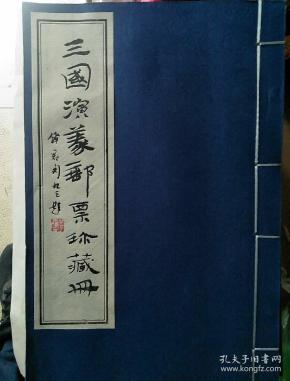 三國演義郵票珍藏冊
孔夫子旧书网
www.kongfz.com